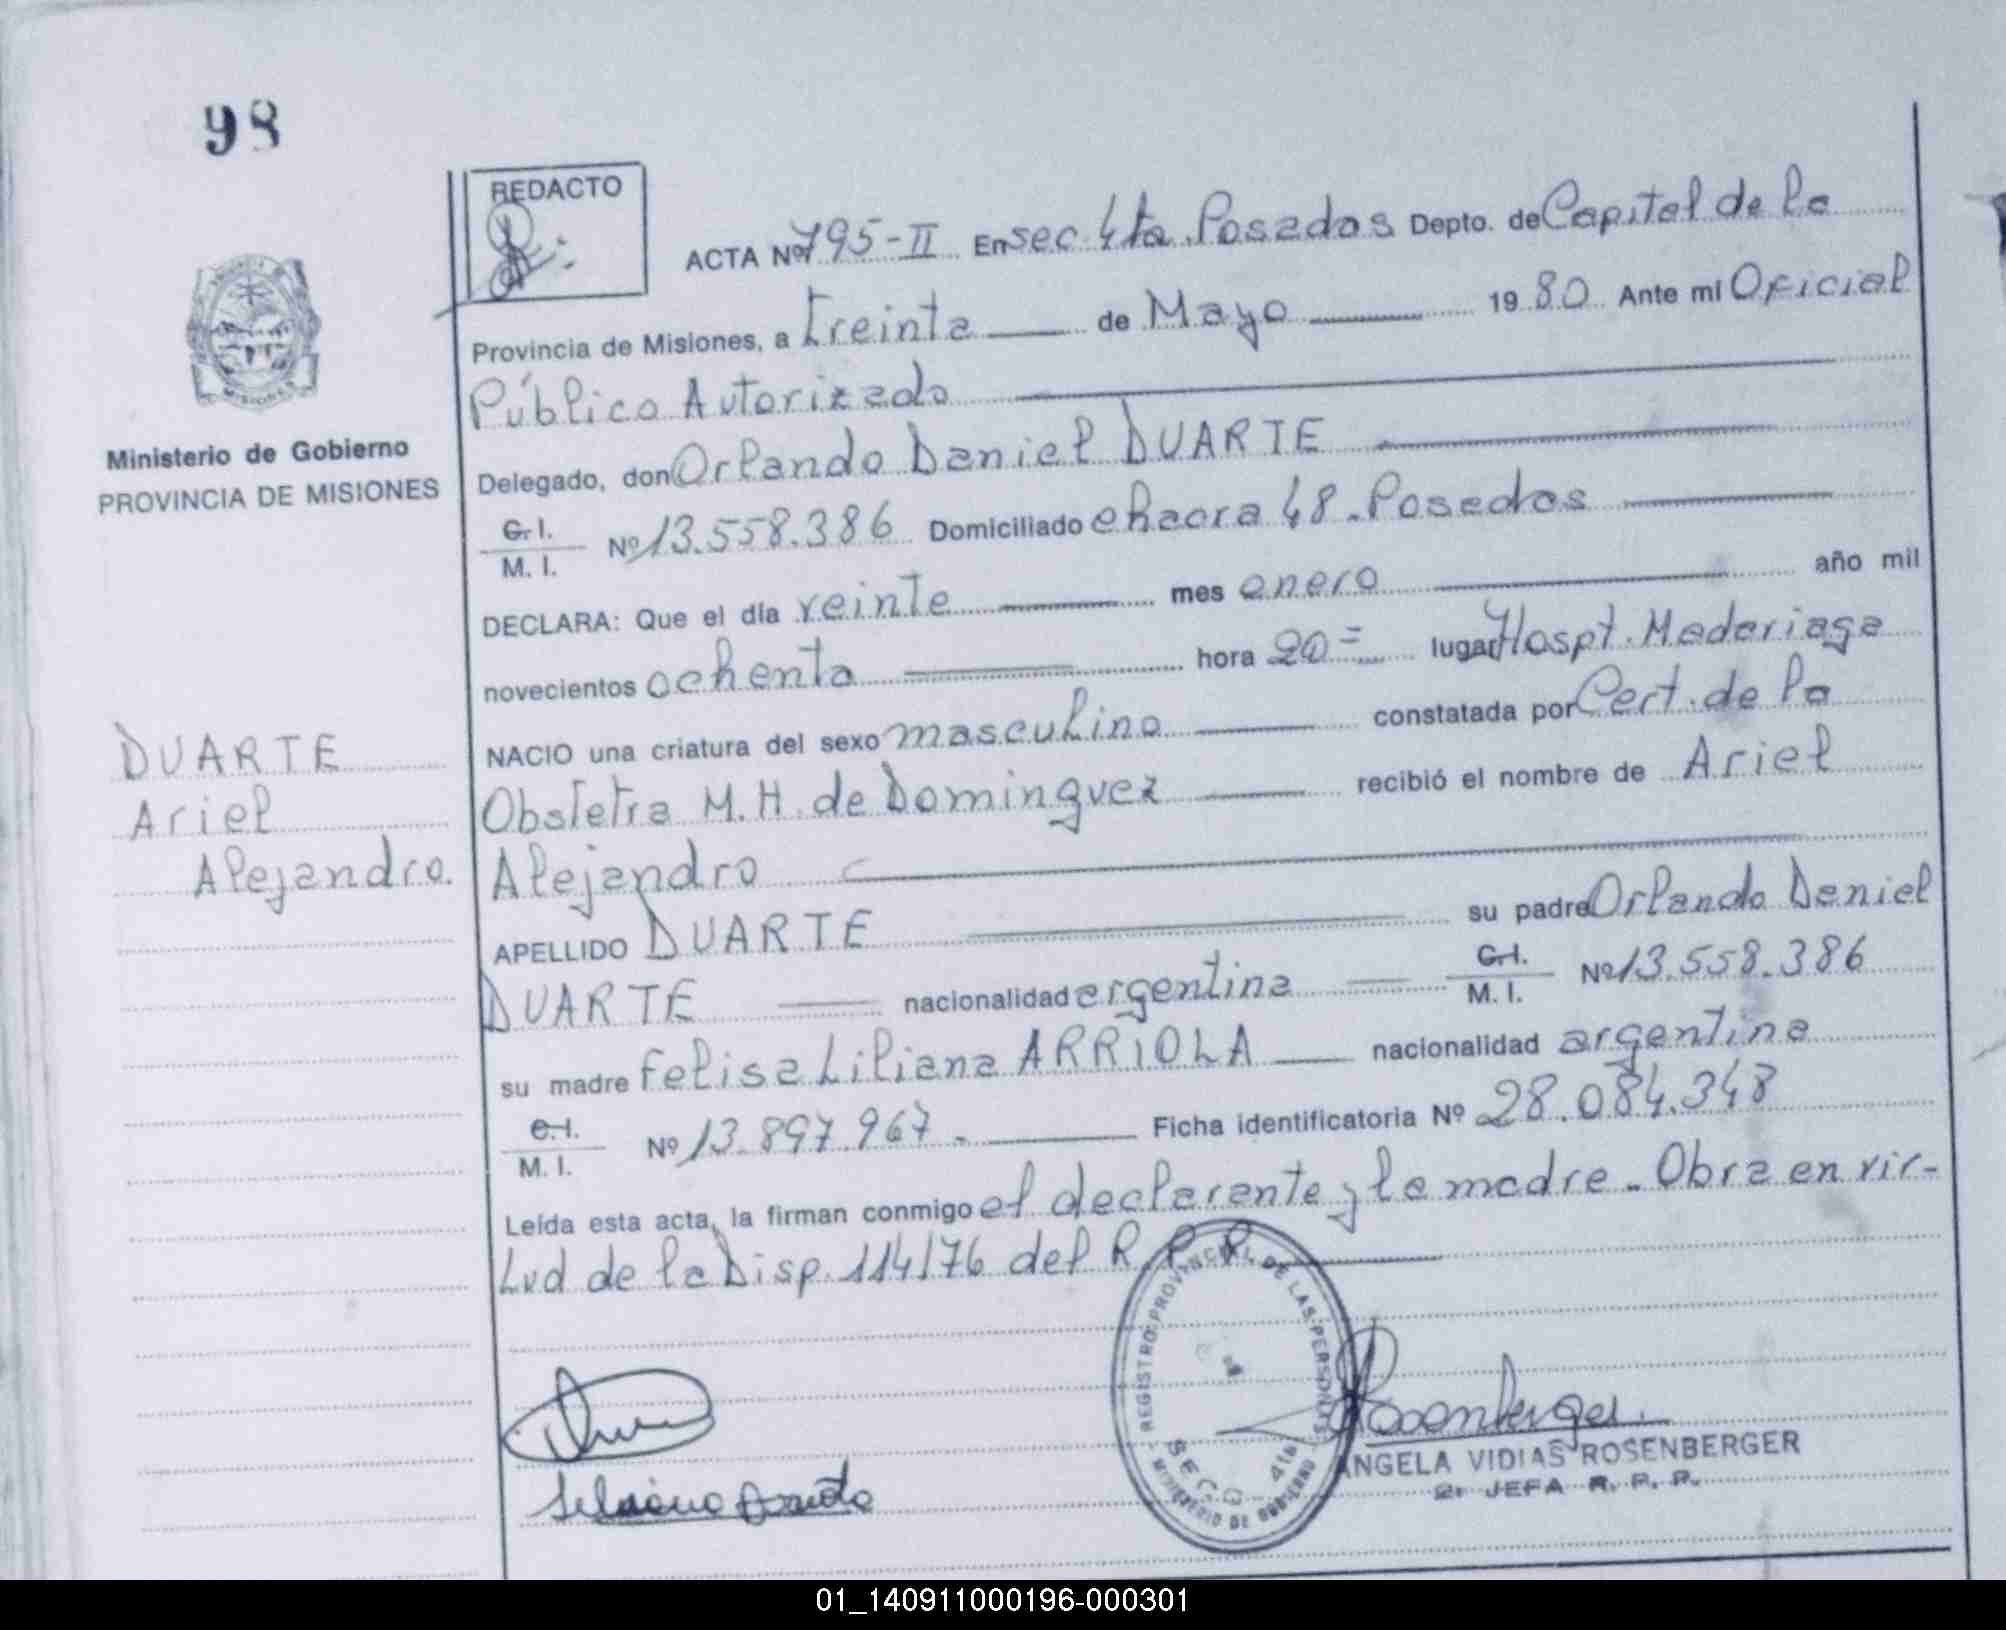 98
REDACTO
ACTA Nº 795-II En sec. 4ta. Posadas Depto. de Capital de la
Provincia de Misiones, a treinta de Mayo 1980 Ante mi Oficial
Público Autorizado
Delegado, don Orlando Daniel DUARTE
C. I.
M. I. Nº 13.558.386 Domiciliado chacra 48. Posadas
DECLARA: Que el día veinte mes enero año mil
novecientos ochenta hora 20= lugar Hospt. Madariaga
NACIO una criatura del sexo masculino constatada por Cert. de la
Obstetra M. H. de Dominguez recibió el nombre de Ariel
Alejandro
APELLIDO DUARTE su padre Orlando Daniel
DUARTE nacionalidad argentina C. I. M. I. Nº 13.558.386
su madre Felisa Liliana ARRIOLA nacionalidad argentina
C. I.
M. I. Nº 13.897.967. Ficha identificatoria Nº 28.084.348
Leída esta acta, la firman conmigo el declarante y la madre. Obra en vir-
tud de la Disp. 114/76 del R. P. P.
Ministerio de Gobierno
PROVINCIA DE MISIONES
MISIONES
DUARTE
Ariel
Alejandro.
REGISTRO PROVINCIAL DE LAS PERSONAS
SEC. 4ta
MINISTERIO DE GOBIERNO
Rosenberger
ANGELA VIDIAS ROSENBERGER
2: JEFA R. P. P.
01_140911000196-000301